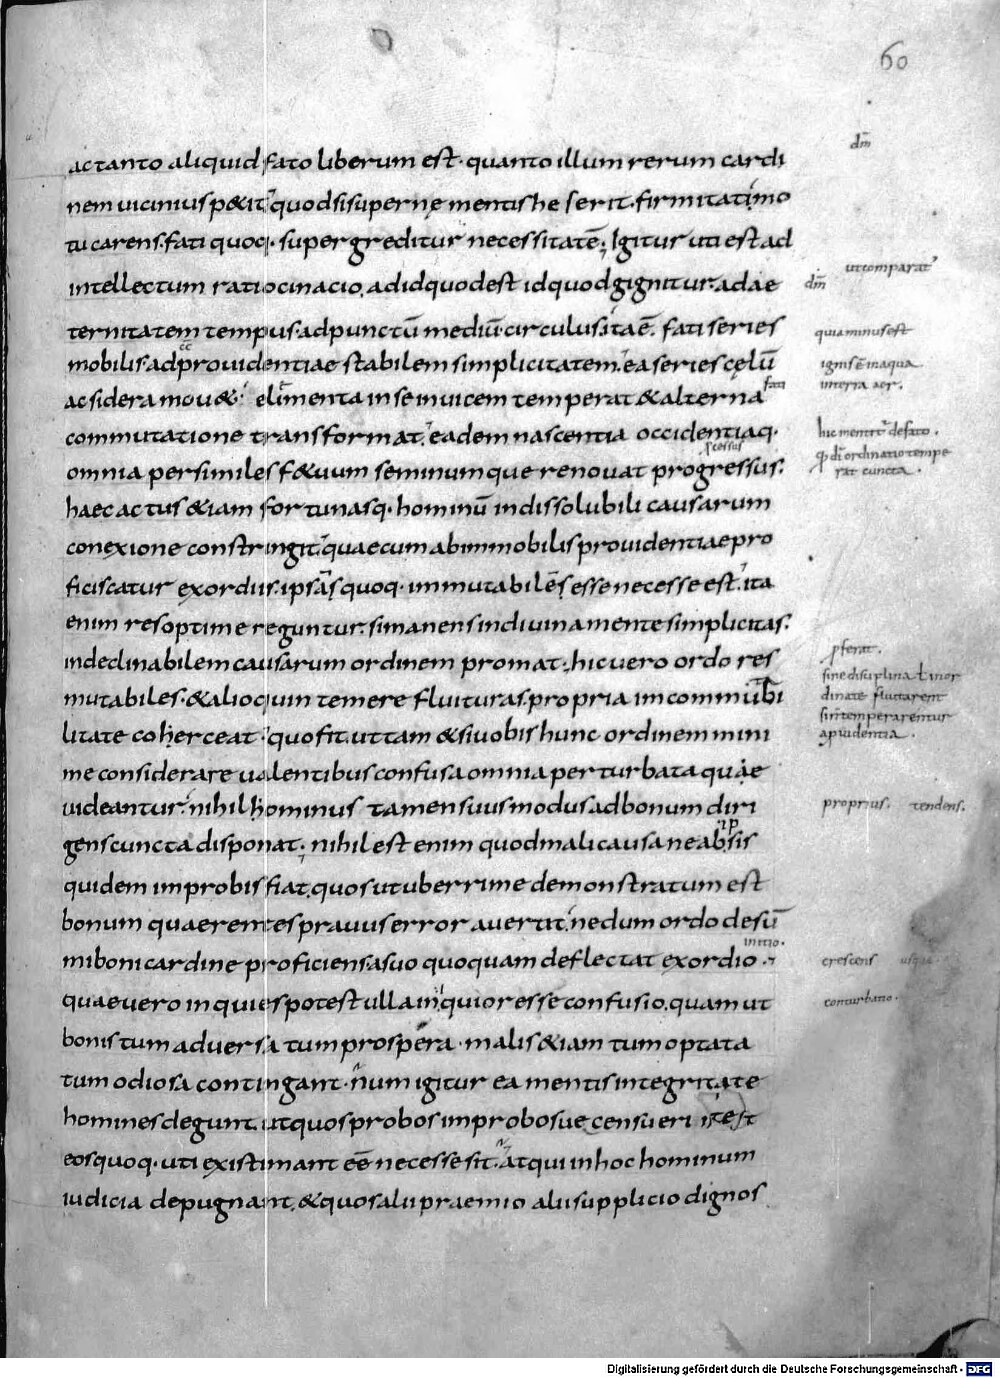 60
ac tanto aliquid fato liberum est · quanto illum rerum cardi
nem uicinius p&it quodsi supernę mentis heserit · firmitati mo
tu carens · fati quoq· supergreditur necessitatē; Igitur uti est ad
intellectum ratiocinacio · ad id quod est id quod gignitur · ad ae
ternitatem tempus · ad punctū mediū circulus · ita ē · fati series
mobilis · ad prouidentiae stabilem simplicitatem · ea series cęlū
ac sidera mou& · elimenta in se inuicem temperat & alterna
commutatione transformat · eadem nascentia occidentiaq·
omnia per similes f&uum seminumque renouat progressus ·
haec actus &iam fortunasq· hominū indissolubili causarum
conexione constringit · quae cum ab immobilis prouidentiae pro
ficiscatur exordiis · ipsas quoq· immutabiles esse necesse est · ita
enim res optime reguntur · si manens in diuina mente simplicitas ·
indeclinabilem causarum ordinem promat · hic uero ordo res
mutabiles · & alioquin temere fluituras · propria incommutabi
litate coherceat · quo fit ut tam &si uobis hunc ordinem mini
me considerare ualentibus confusa omnia perturbataquae
uideantur · nihil hominus tamen suus modus ad bonum diri
gens cuncta disponat · nihil est enim quod mali causa ne ab ipsis
quidem improbis fiat · quos ut uberrime demonstratum est
bonum quaerentes prauus error auertit · nedum ordo de sum̄
mi boni cardine proficiens a suo quoquam deflectat exordio ·
quae uero inquies potest ulla iniquior esse confusio · quam ut
bonis tum aduersa tum prospera · malis &iam tum optata
tum odiosa contingant · num igitur ea mentis integritate
homines degunt · ut quos probos improbosue censuerint
eos quoq· uti existimant eē necesse sit · atqui in hoc hominum
iudicia depugnant · & quos alii praemio alii supplicio dignos
dm̄
ut comparat̄
dm̄
quia minus est
ignis ē in aqua
in terra aer ·
fati
hic mentit̄ de fato ·
ordinatio tempe
rat cuncta ·
sine disciplina
dinate fluitarent
si n̄ temperarentur
a puidentia ·
proprius · tendens ·
initio ·
crescens usque
conturbatio ·
Digitalisierung gefördert durch die Deutsche Forschungsgemeinschaft - DFG